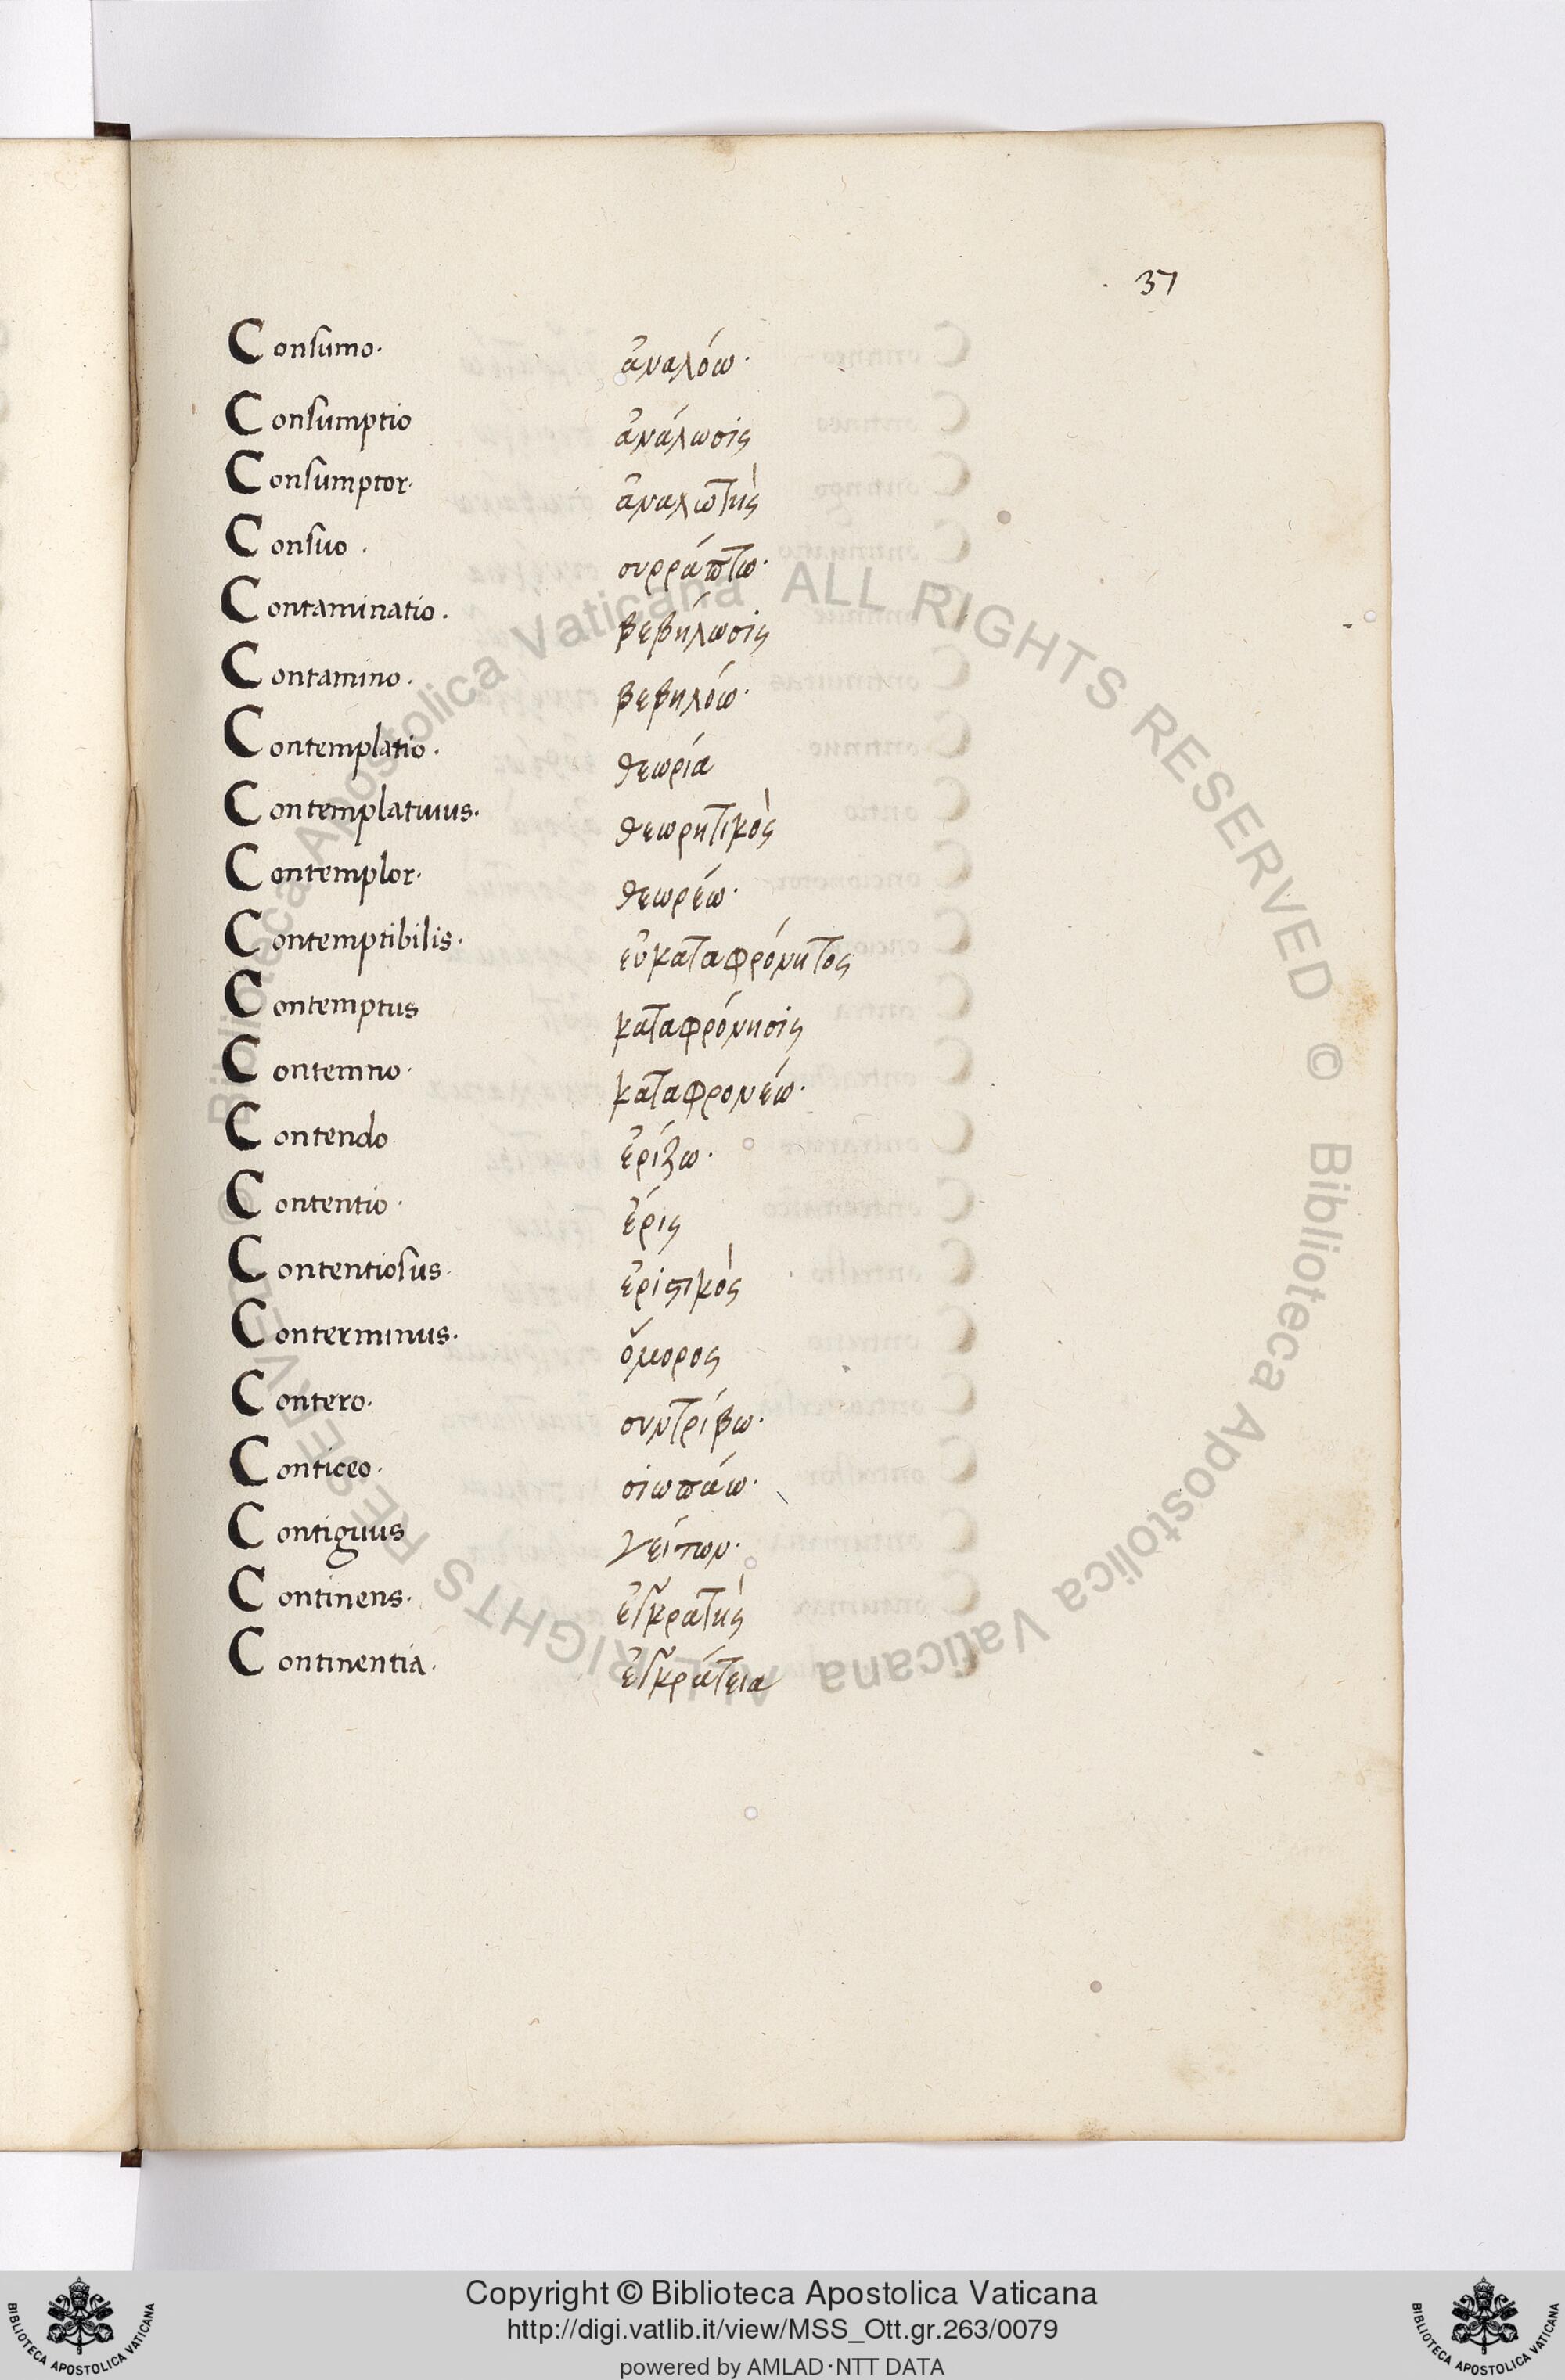 37
Consumo. ἀναλόω.
Consumptio ἀνάλωσις
Consumptor. ἀναλωτὴς
Consuo . συρράπτω.
Contaminatio. βεβήλωσις
Contamino. βεβηλόω.
Contemplatio. θεωρία
Contemplatiuus. θεωρητικὸς
Contemplor. θεωρέω.
Contemptibilis. εὐκαταφρόνητος
Contemptus καταφρόνησις
Contemno. καταφρονέω.
Contendo ἐρίζω.
Contentio. ἔρις
Contentiosus. ἐριστικὸς
Conterminus. ὅμορος
Contero. συντρίβω.
Conticeo. σιωπάω.
Contiguus γείτων.
Continens. ἐγκρατὴς
Continentia. ἐγκράτεια
© Biblioteca Apostolica Vaticana ALL RIGHTS RESERVED © Biblioteca Apostolica Vaticana ALL RIGHTS RESERVED
Copyright © Biblioteca Apostolica Vaticana
http://digi.vatlib.it/view/MSS_Ott.gr.263/0079
powered by AMLAD·NTT DATA
BIBLIOTECA APOSTOLICA VATICANA
BIBLIOTECA APOSTOLICA VATICANA